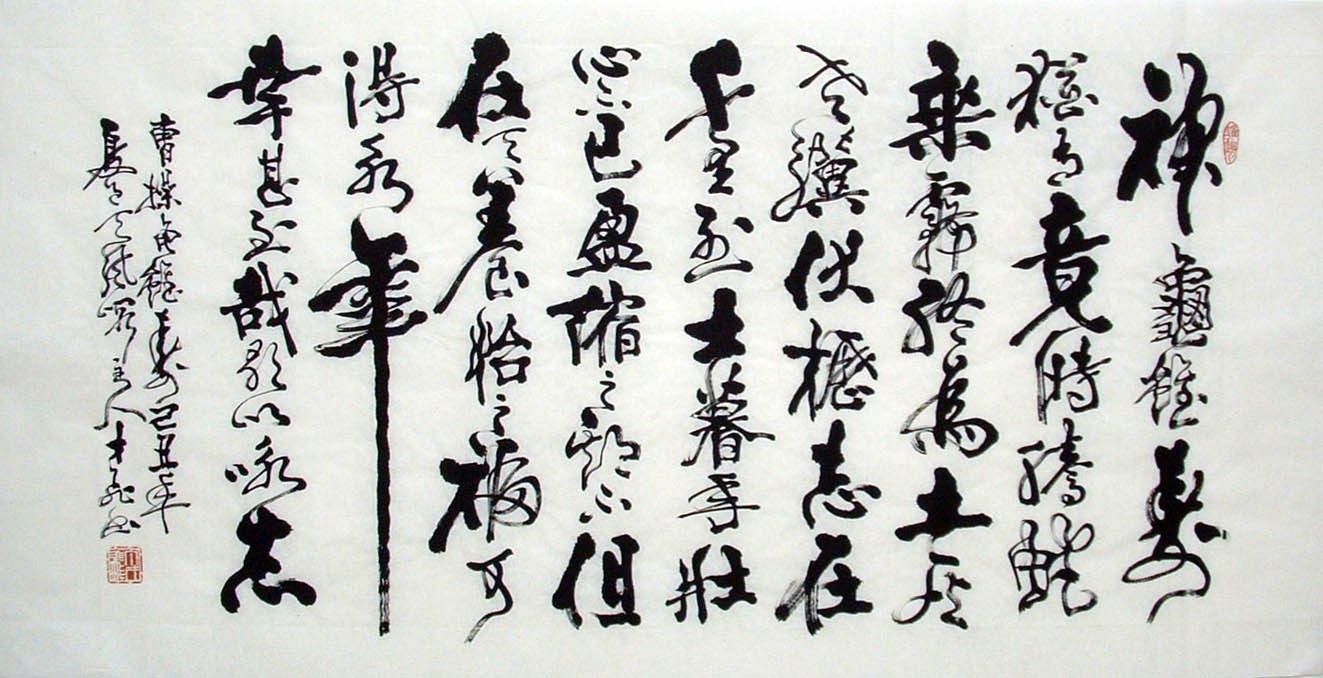 神龜雖壽
猶有竟時騰蛇
乘霧終為土灰
老驥伏櫪志在
千里烈士暮年壯
心不已盈縮之期不但
在天養怡之福可
得永年
幸甚至哉歌以詠志
曹操龜雖壽己丑年
夏月
主人
书